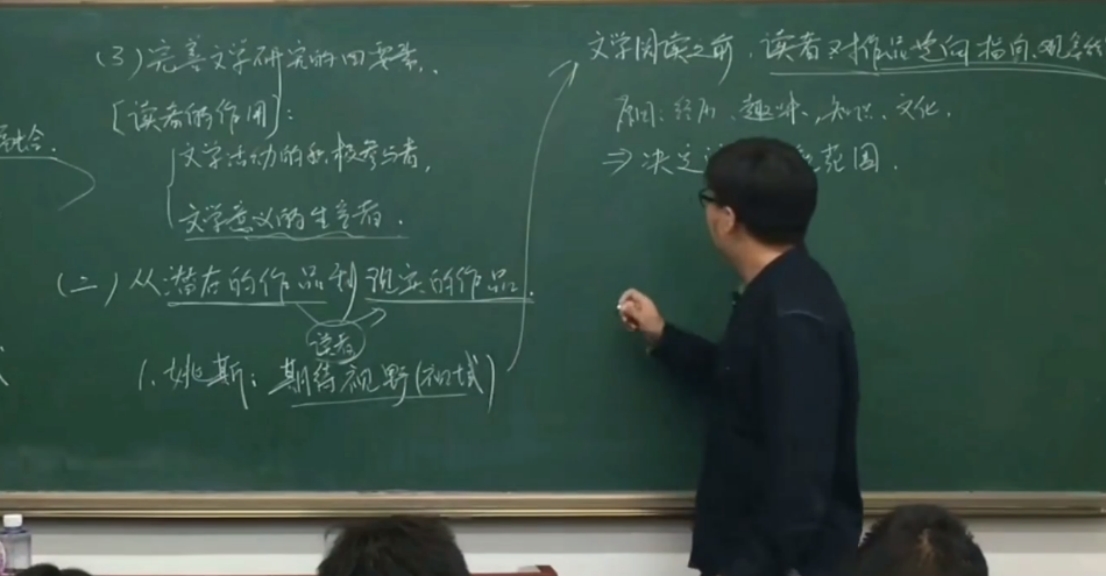 融合.
(3)完善文学研究的四要素.
[读者的作用]:
文学活动的积极参与者,
文学意义的生产者.
(二)从潜在的作品到现实的作品.
读者
1.姚斯:期待视野(视域)
文学阅读之前,读者对作品定向指向.观念
原因:经历、趣味、知识、文化.
⇒决定 范围.